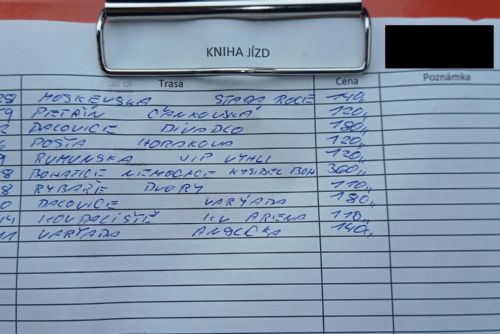 KNIHA JÍZD
Trasa Cena Poznámka
MOSKEVSKA STARA ROLE 140,,
PETŘÍN ČANKOVSKÁ 120,,
DALOVICE DIVADLO 180,,
POŠTA HORAKOVA 120,,
RUMUNSKA VIP 120,,
BOHATICE NEMOCNICE BOH 360,,
RYBÁŘE DVORY 110,,
DALOVICE VARYADA 180,,
KOUPALIŠTĚ KV ARENA 110,,
VARYADA ANGLICKA 140,,